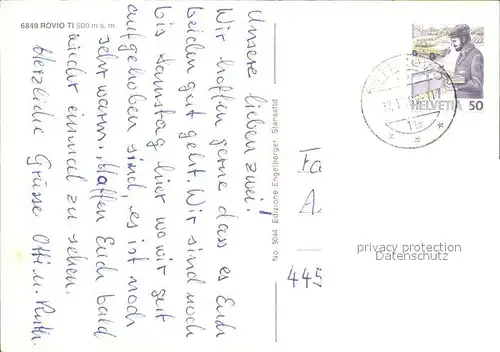 6849 ROVIO TI 500 m s. m.
Unsere lieben zwei!
Wir hoffen gerne dass es Euch
beiden gut geht. Wir sind noch
bis Samstag hier wo wir gut
aufgehoben sind, es ist noch
sehr warm. Hoffen Euch bald
wieder einmal zu sehen.
Herzliche Grüsse Otti u. Ruth.
No. 9044 Edizione Engelberger, Stansstad
HELVETIA 50
Fa
A.
445
privacy protection
Datenschutz